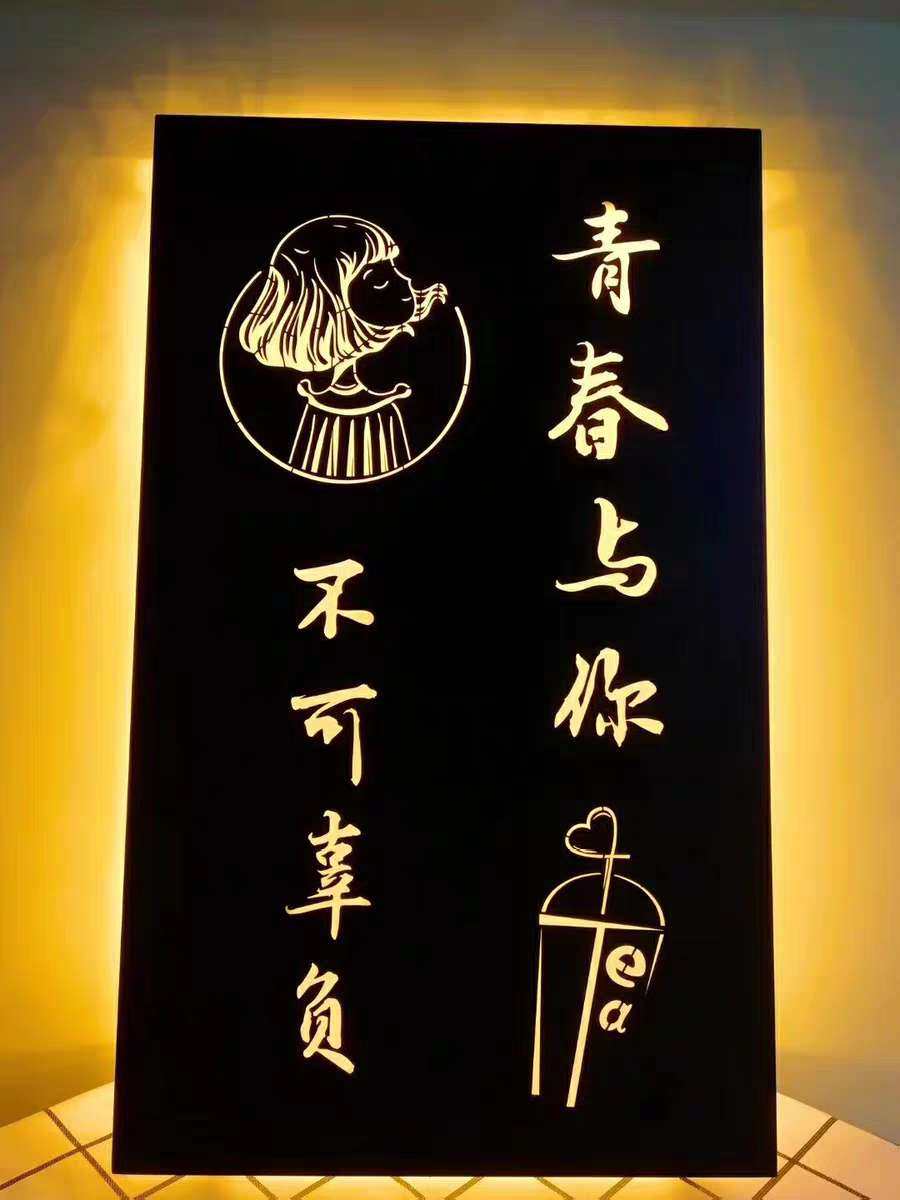 青春与你
不可辜负
Tea